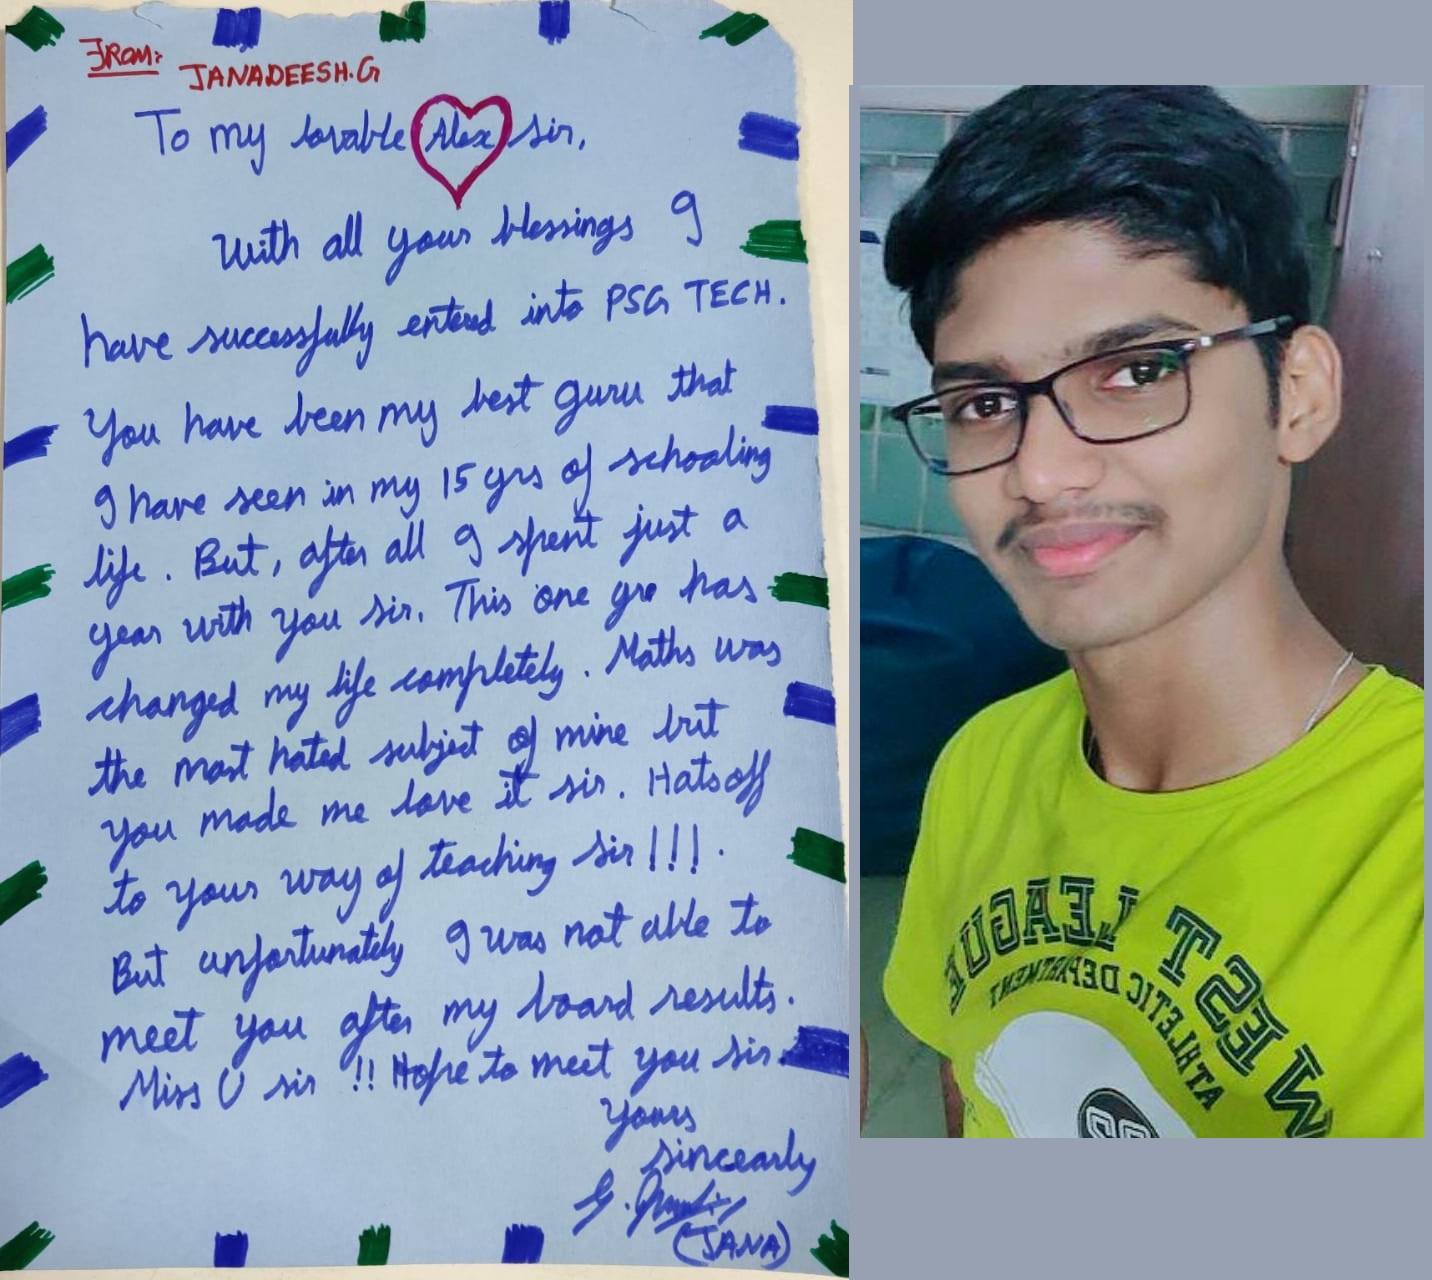 FROM:
JANADEESH.G
To my lovable Alex sir,
With all your blessings I
have successfully entered into PSG TECH.
You have been my best guru that
I have seen in my 15 yrs of schooling
life. But, after all I spent just a
year with you sir. This one yre has
changed my life completely. Maths was
the most hated subject of mine but
you made me love it sir. Hatsoff
to your way of teaching sir!!!.
But unfortunately I was not able to
meet you after my board results.
Miss U sir !! Hope to meet you sir.
Yours
sincearly
(JANA)
WEST LEAGUE
ATHLETIC DEPARTMENT